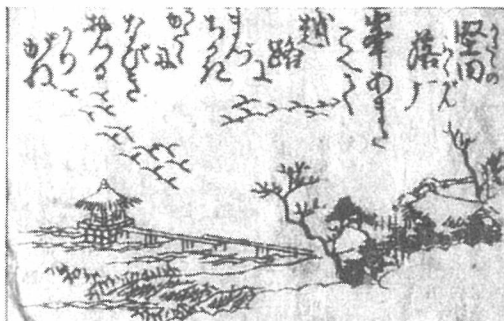 堅田
落雁
峯あまた
こえて
越
路
に
まづ
ちかき
かた田
なびき
おつる
かり
がね